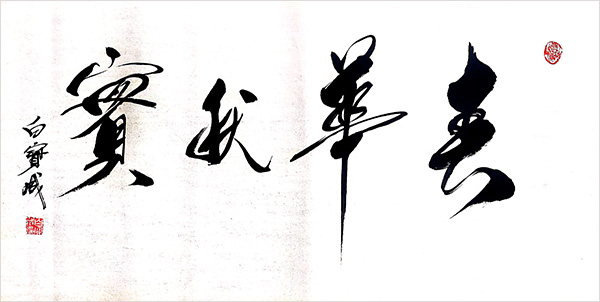 春華秋實
白寶成